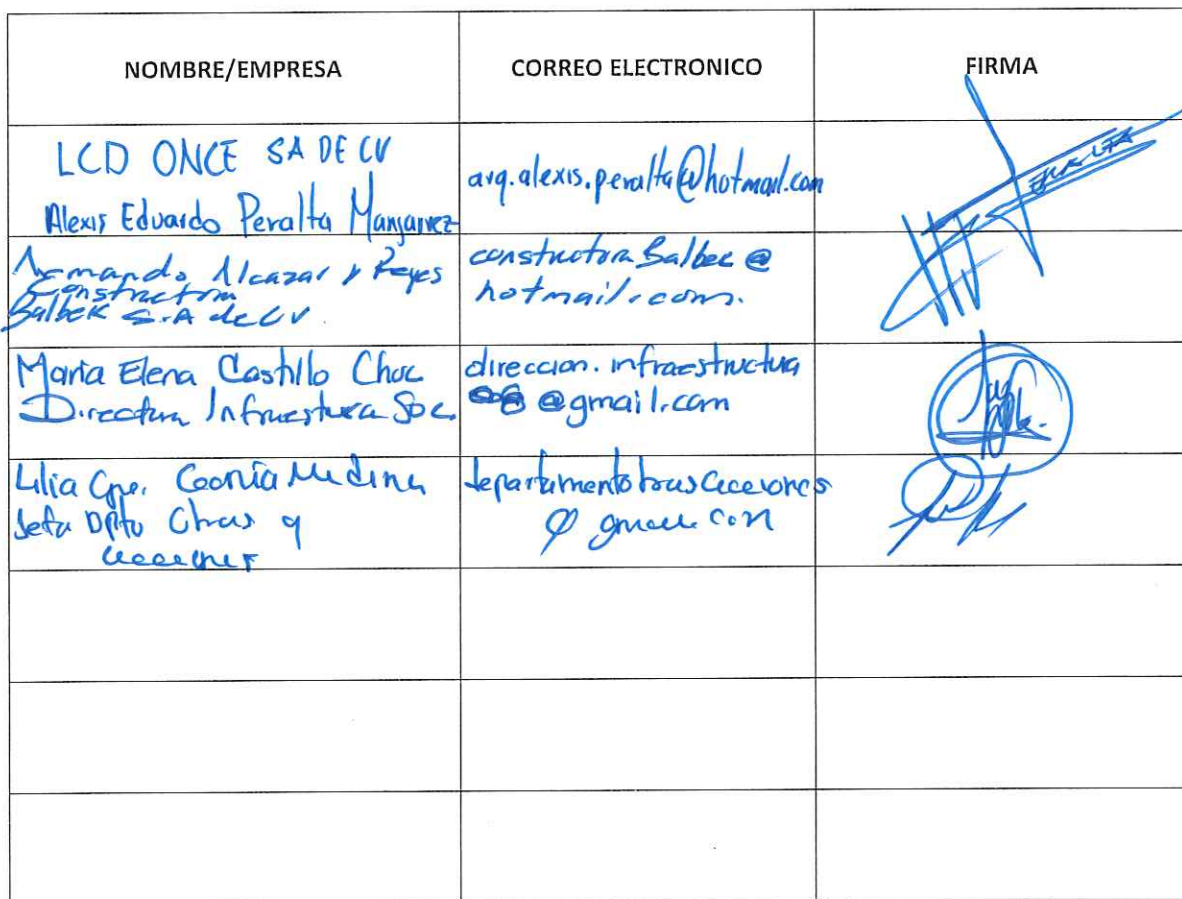 NOMBRE/EMPRESA
CORREO ELECTRONICO
FIRMA
LCD ONCE SA DE CV
Alexis Eduardo Peralta Manjarrez
arq.alexis.peralta@hotmail.com
PERALTA
Armando Alcazar y Reyes
Constructora
Balbek S.A de CV
constructora Balbec @
hotmail.com.
Maria Elena Castillo Choc
Directora Infraestura Soc.
direccion.infraestructura
@gmail.com
Lilia Gpe. Medina
Jefa Dpto Obras y